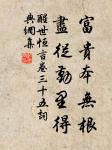 富貴本無根
盡從勤里得
醒世恒言卷三十五詞
興網集